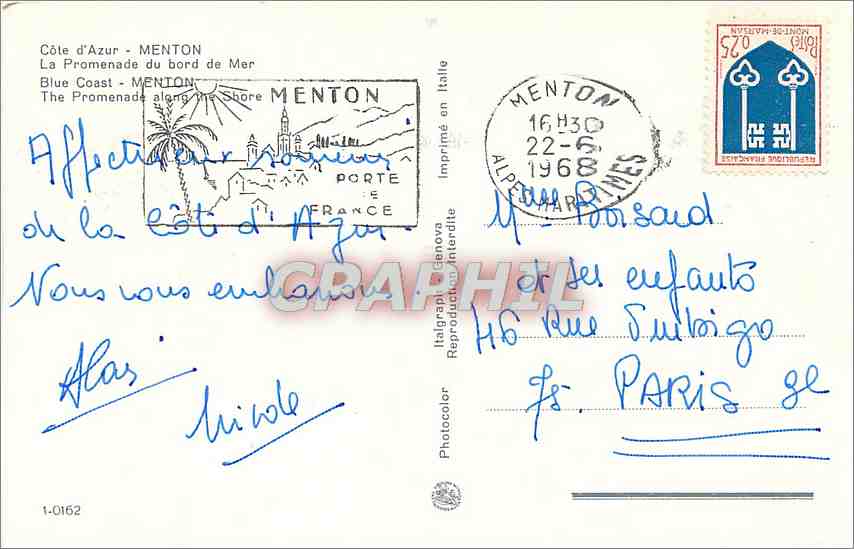 Côte d'Azur - MENTON
La Promenade du bord de Mer
Blue Coast - MENTON
The Promenade along the Shore
MENTON
PORTE
DE
FRANCE
Affectueux souvenirs
de la Côte d'Azur.
Nous vous embrassons.
Nicole
1-0162
Photocolor
Italgraph - Genova
Reproduction Interdite
Imprimé en Italie
CPAPHIL
MENTON
16H30
22-6
1968
ALPES MARITIMES
POSTES
0,25
MONT-DE-MARSAN
REPUBLIQUE FRANÇAISE
Mme Boisard
et ses enfants
46 Rue Turbigo
75. PARIS 3e